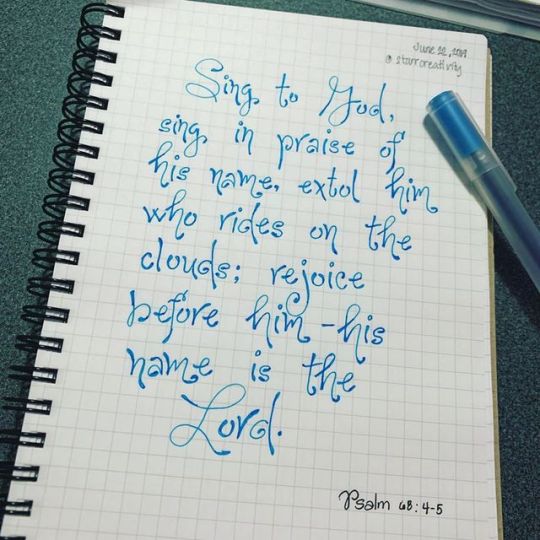 June 22, 2019
@ starrcreativity
Sing to God,
sing in praise of
his name, extol him
who rides on the
clouds; rejoice
before him - his
name is the
Lord.
Psalm 68:4-5